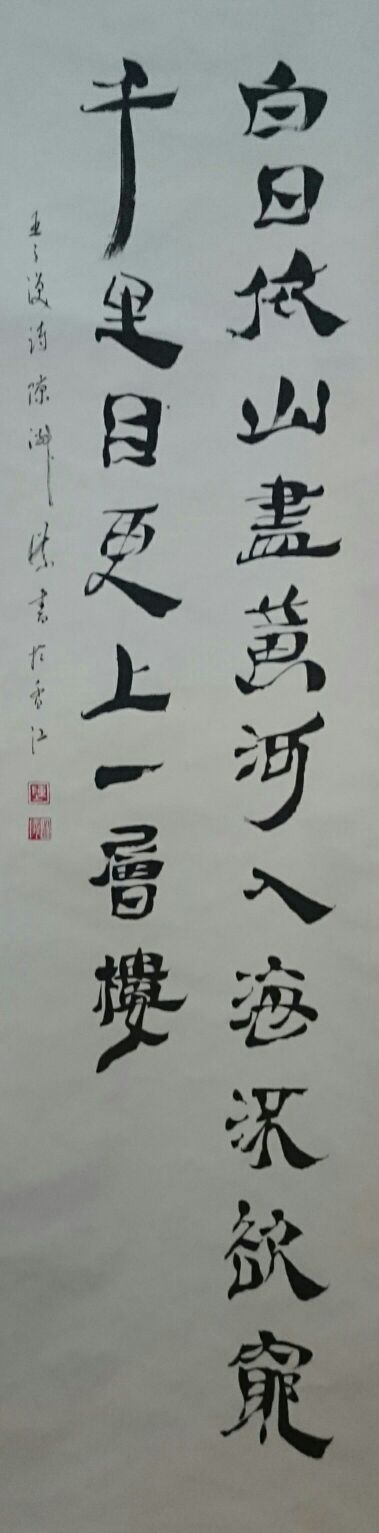 白日依山盡黃河入海流欲窮
千里目更上一層樓
王之渙詩陳書於香江